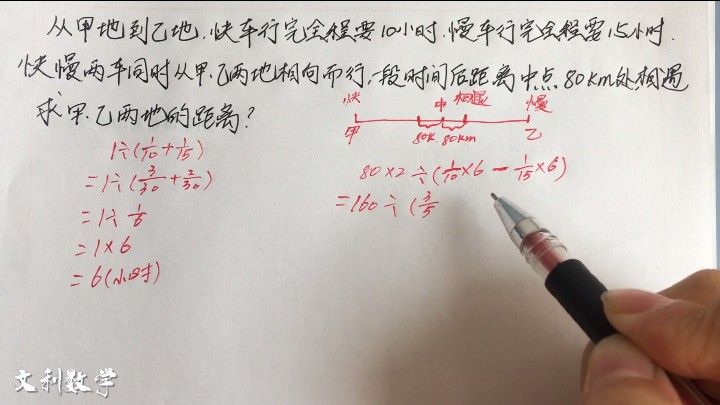 从甲地到乙地,快车行完全程要10小时,慢车行完全程要15小时.
快慢两车同时从甲、乙两地相向而行,一段时间后距离中点80km处相遇
求甲、乙两地的距离?
快 中 相遇 慢
甲 80k 80km 乙
1÷(1/10+1/15)
=1÷(3/30+2/30)
=1÷1/6
=1×6
=6(小时)
80×2÷(1/10×6-1/15×6)
=160÷(3/5
文利数学